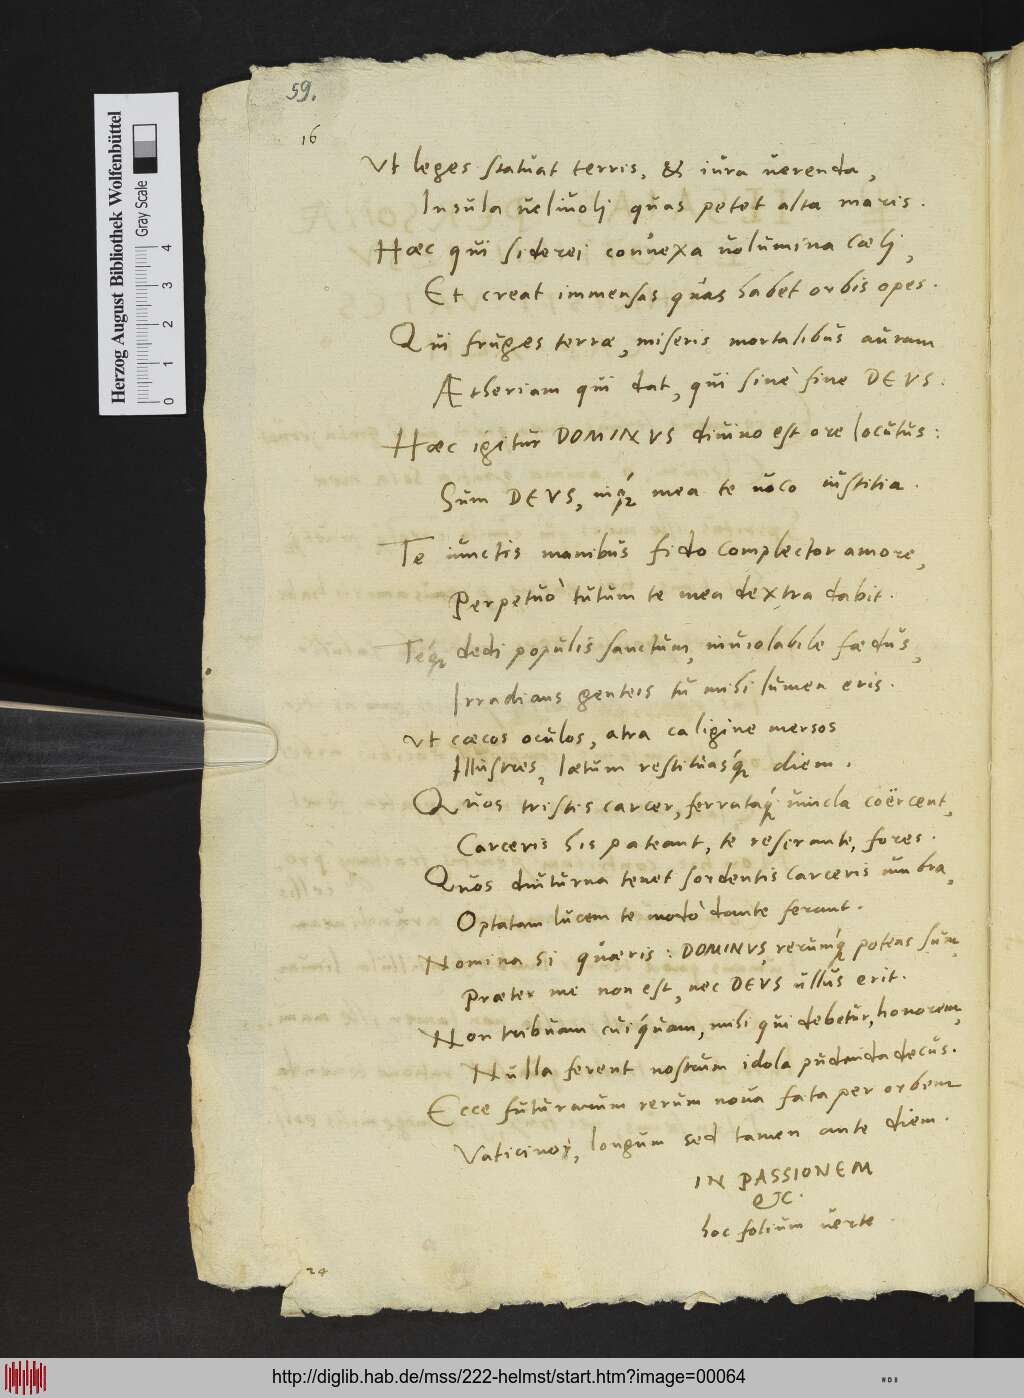 59.
16
Vt leges statuat terris, & iura uerenda,
Insula ueliuoli quas petet alta maris.
Hæc qui siderei conuexa uolumina Cæli,
Et creat immensas quas habet orbis opes.
Qui fruges terræ, miseris mortalibus auram
Ætheriam qui dat, qui sine fine DEVS.
Hæc igitur DOMINVS diuino est ore locutus:
Sum DEVS, inq́ꝫ mea te uoco iustitia.
Te iunctis manibus fido complector amore,
Perpetuò tutum te mea dextra dabit.
Téq́ꝫ dedi populis sanctum, inuiolabile fœdus,
Irradians genteis tu mihi lumen eris.
Vt cæcos oculos, atra caligine mersos
Illustres, lætum restituasq́ꝫ diem.
Quos tristis carcer, ferrataq́ꝫ uincla coërcent,
Carceris his pateant, te reserante, fores.
Quos diuturna tenet sordentis Carceris umbra,
Optatam lucem te modò dante ferant.
Nomina si quæris: DOMINVS, rerumq́ꝫ potens sum,
Præter me non est, nec DEVS ullus erit.
Non tribuam cuiquam, nisi qui debetur, honorem,
Nulla ferent nostrum idola pudenda decus.
Ecce futurarum rerum noua fata per orbem
Vaticinor, longum sed tamen ante diem.
IN PASSIONEM
&c.
hoc folium uerte.
24
Herzog August Bibliothek Wolfenbüttel
Gray Scale
0 1 2 3 4
http://diglib.hab.de/mss/222-helmst/start.htm?image=00064